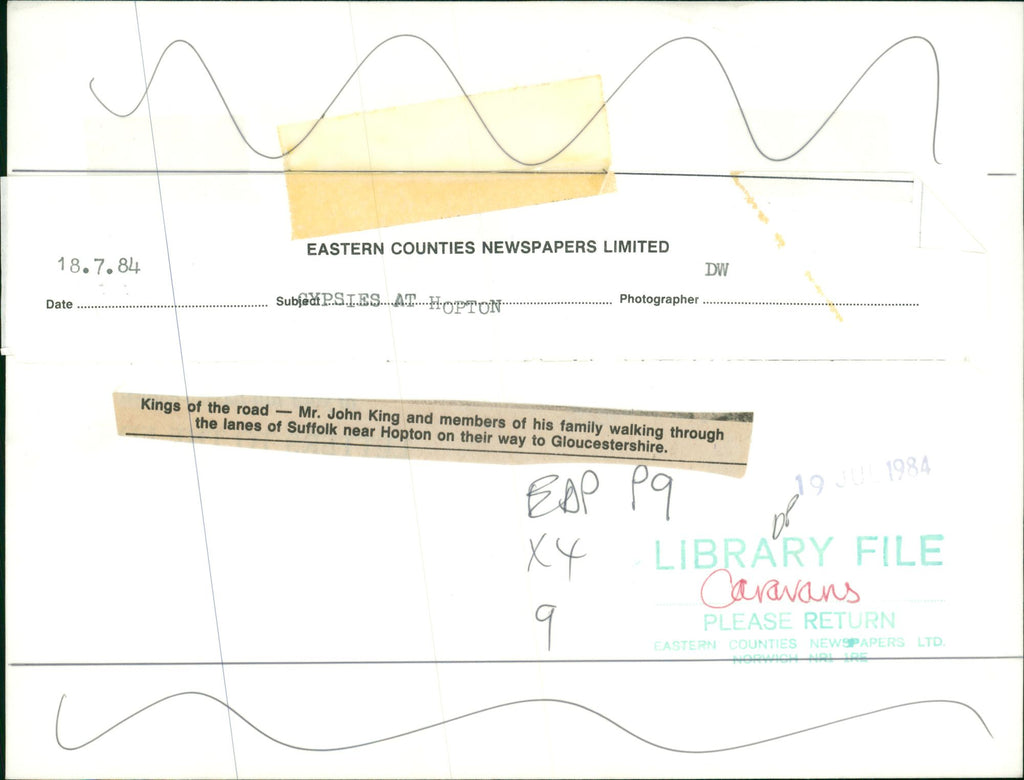 EASTERN COUNTIES NEWSPAPERS LIMITED
18.7.84
DW
Date
Subject GYPSIES AT HOPTON
Photographer
Kings of the road — Mr. John King and members of his family walking through
the lanes of Suffolk near Hopton on their way to Gloucestershire.
EDP P9
19 JUL 1984
X4
LIBRARY FILE
Caravans
9
PLEASE RETURN
EASTERN COUNTIES NEWSPAPERS LTD.
NORWICH NR1 1RE